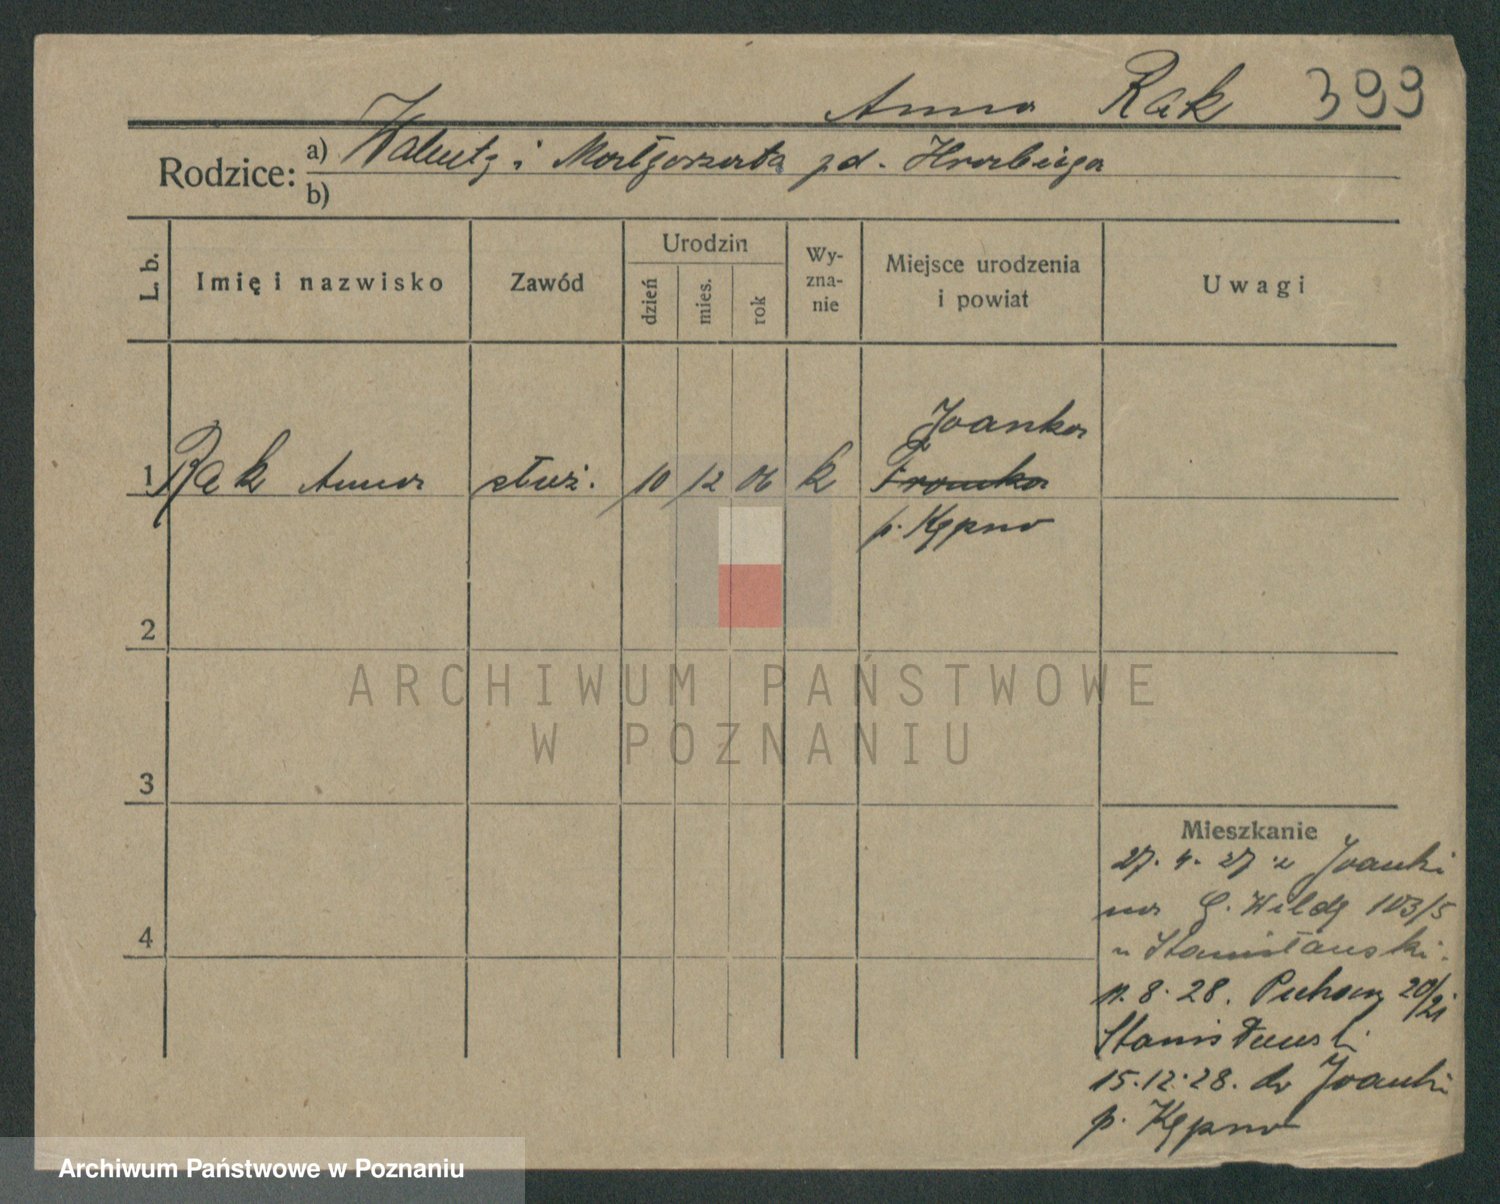 Anna Rak 399
Rodzice: a) Walenty i Małgorzata zd. Hrabiega
b)
L. b.
Imię i nazwisko
Zawód
Urodzin
dzień
mies.
rok
Wy-
zna-
nie
Miejsce urodzenia
i powiat
Uwagi
Joanka
1 Rak Anna służ. 10 12 06 k Fromka
p. Kępno
2
3
4
ARCHIWUM PAŃSTWOWE
W POZNANIU
Mieszkanie
27. 4. 27 z Joanki
na G. Wildę 103/5
u Stanisławski.
11. 8. 28. 20/21
Stanisławski
15.12.28. do Joanki
p. Kępno
Archiwum Państwowe w Poznaniu